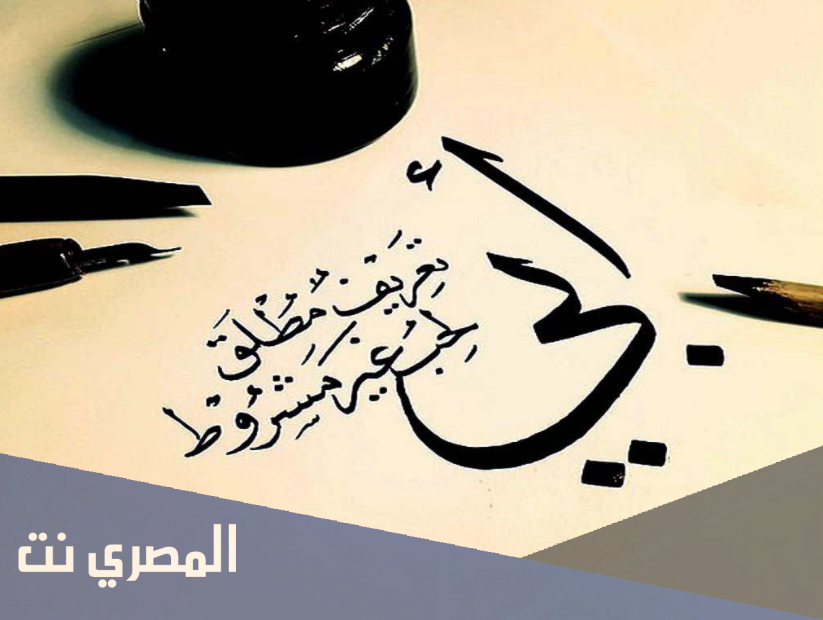 أبي
تعريف مُطْلَق
لِحُب غير مشرُوط
المصري نت